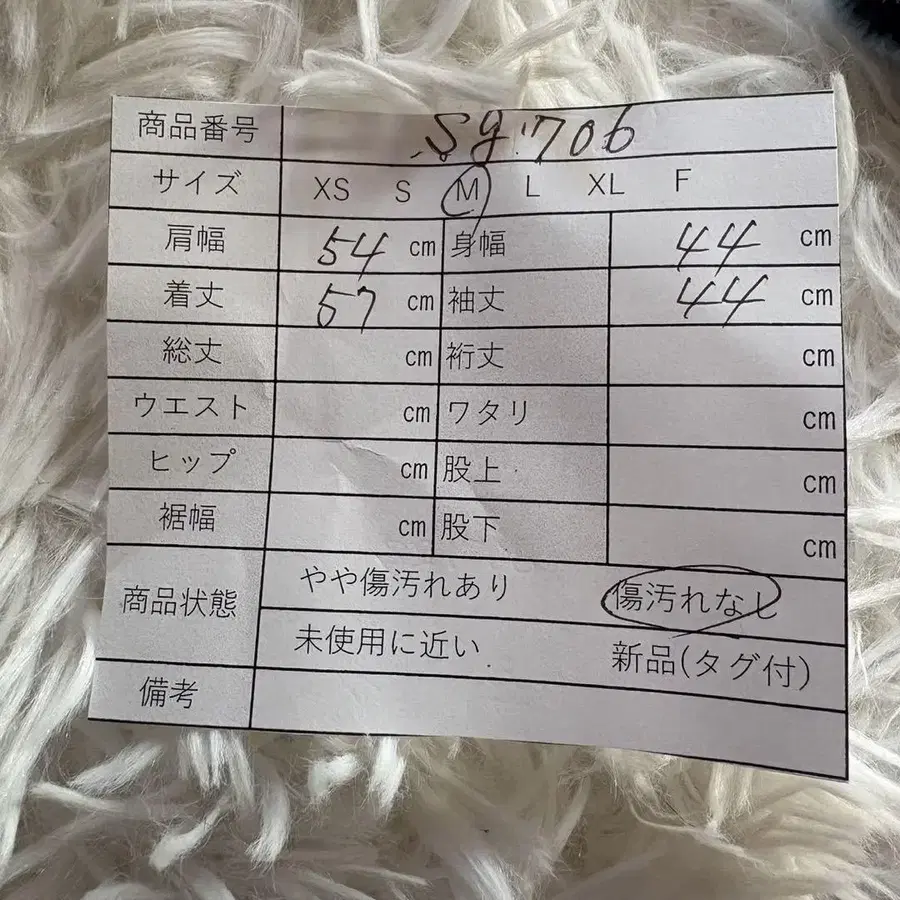 商品番号 sg706
サイズ XS S M L XL F
肩幅 54 cm 身幅 44 cm
着丈 57 cm 袖丈 44 cm
総丈 cm 裄丈 cm
ウエスト cm ワタリ cm
ヒップ cm 股上 cm
裾幅 cm 股下 cm
商品状態 やや傷汚れあり 傷汚れなし
未使用に近い 新品(タグ付)
備考